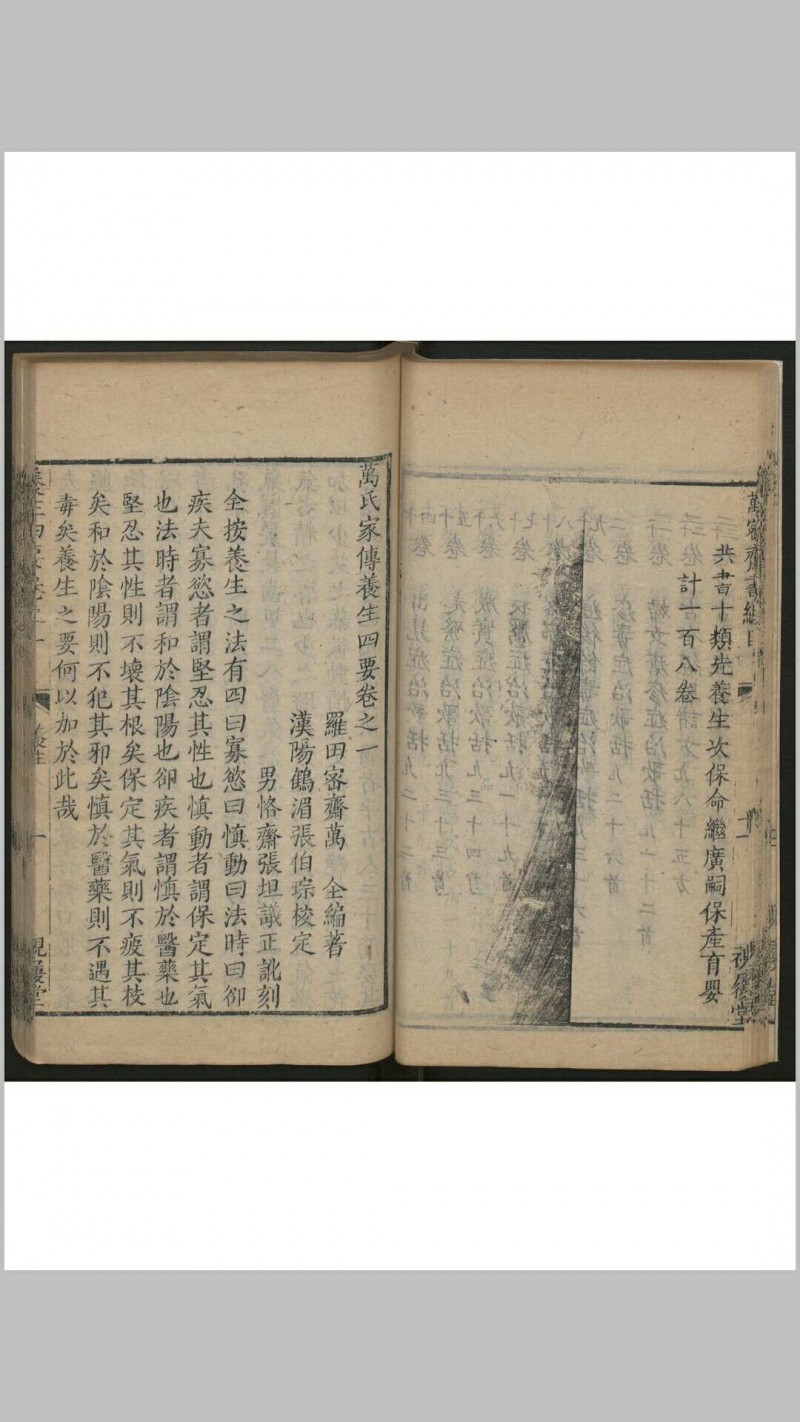 萬密齋書總目
共書十類先養生次保命繼廣嗣保產育嬰
計一百八卷
萬氏家傳養生四要卷之一
羅田密齋萬 全編著
漢陽鶴湄張伯琮校定
男恪齋張坦議正訛刻
全按養生之法有四曰寡慾曰慎動曰法時曰卻
疾夫寡慾者謂堅忍其性也慎動者謂保定其氣
也法時者謂和於陰陽也卻疾者謂慎於醫藥也
堅忍其性則不壞其根矣保定其氣則不疲其枝
矣和於陰陽則不犯其邪矣慎於醫藥則不遇其
毒矣養生之要何以加於此哉